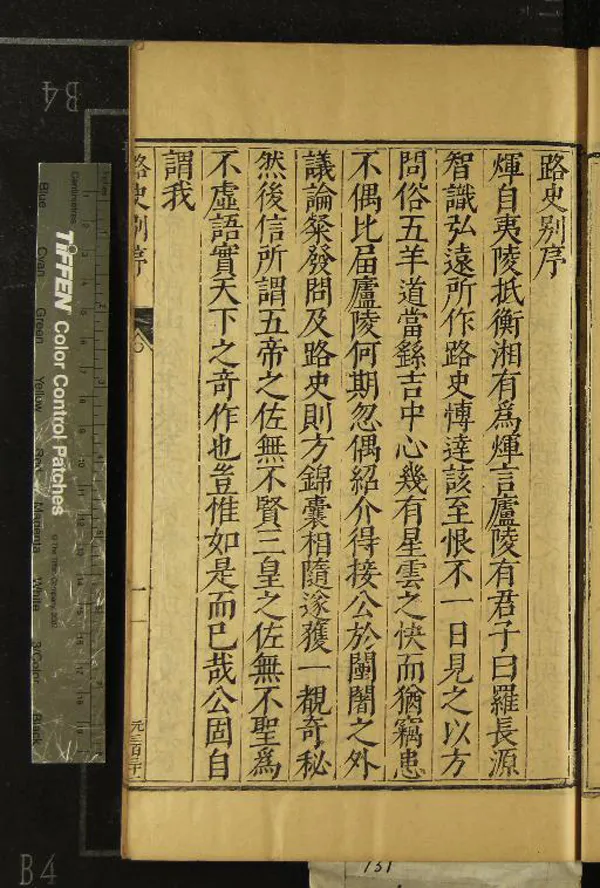 路史别序
煇自夷陵抵衡湘有爲煇言廬陵有君子曰羅長源
智識弘遠所作路史博達該至恨不一日見之以方
問俗五羊道當繇吉中心幾有星雲之快而猶竊患
不偶比届廬陵何期忽偶紹介得接公於闤闠之外
議論粲發問及路史則方錦囊相隨遂獲一覩奇秘
然後信所謂五帝之佐無不賢三皇之佐無不聖爲
不虛語實天下之奇作也豈惟如是而已哉公固自
謂我
路史别序
一
B4
Centimetres
TIFFEN Color Control Patches
© The Tiffen Company, 2000
Blue
Cyan
Green
Yellow
Red
Magenta
White
3/Color
Black
B4
131